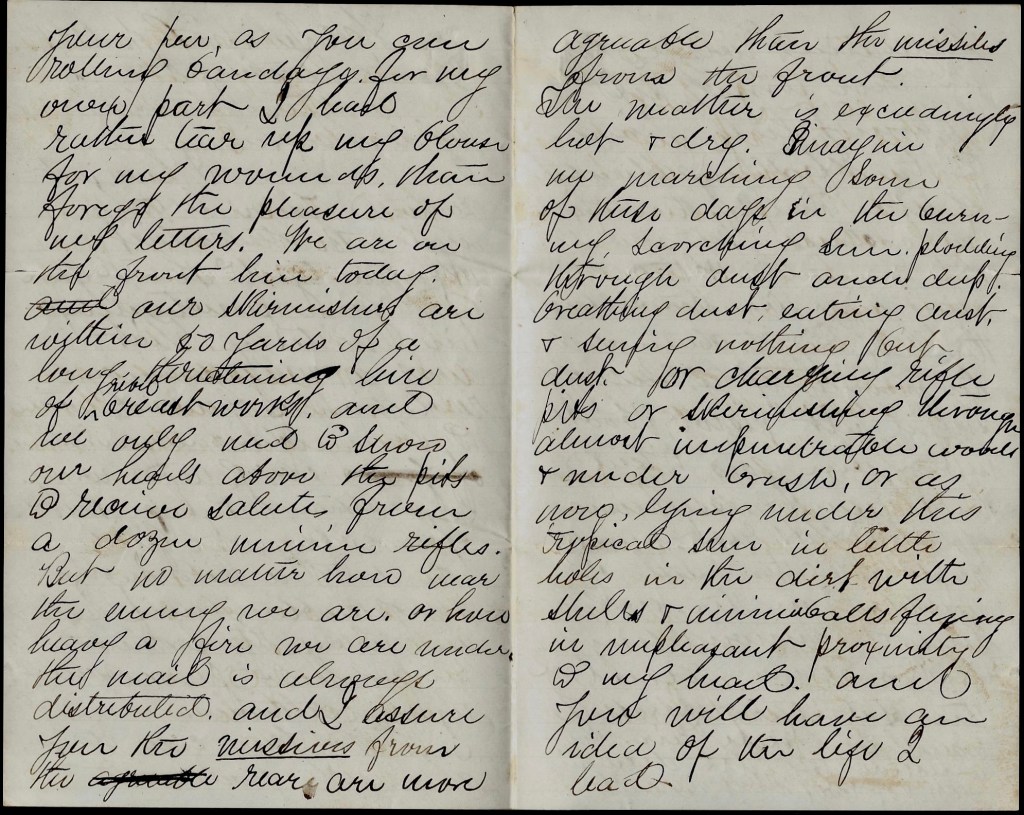 your pen, as you can
rolling bandages. for my
own part I had
rather tear up my blouse
for my wounds, than
forego the pleasure of
my letters. We are on
the front line today.
and our skirmishers are
within 50 yards of a
long threatening line
of rebel breastworks. and
we only need to show
our heads above the pits
to receive salutes from
a dozen minnie rifles.
But no matter how near
the enemy we are. or how
heavy a fire we are under
the mail is always
distributed. and I assure
you the missives from
the agreeable rear, are more
agreable than the missiles
from the front.
The weather is exceedingly
hot & dry. Imagin
me marching some
of these days in the burn-
ing, scorching sun. plodding
through dust ancle deep.
breathing dust, eating dust,
& seeing nothing but
dust. or charging rifle
pits or skirmishing through
almost impenetrable woods
& under brush, or as
now, lying under this
tropical sun in little
holes in the dirt with
shells & minnie balls flying
in unpleasant proximity
to my head. and
you will have an
idea of the life I
lead